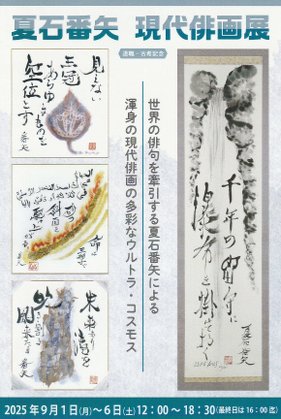 夏石番矢 現代俳画展
退職・古希記念
世界の俳句を牽引する夏石番矢による
渾身の現代俳画の多彩なウルトラ・コスモス
見えない
番矢
未来より
滝を
吹き割る
風来たる
番矢
千年の留守に
瀑布を掛けておく
夏石番矢
2025年9月1日(月)〜6日(土)12:00〜18:30(最終日は16:00迄)